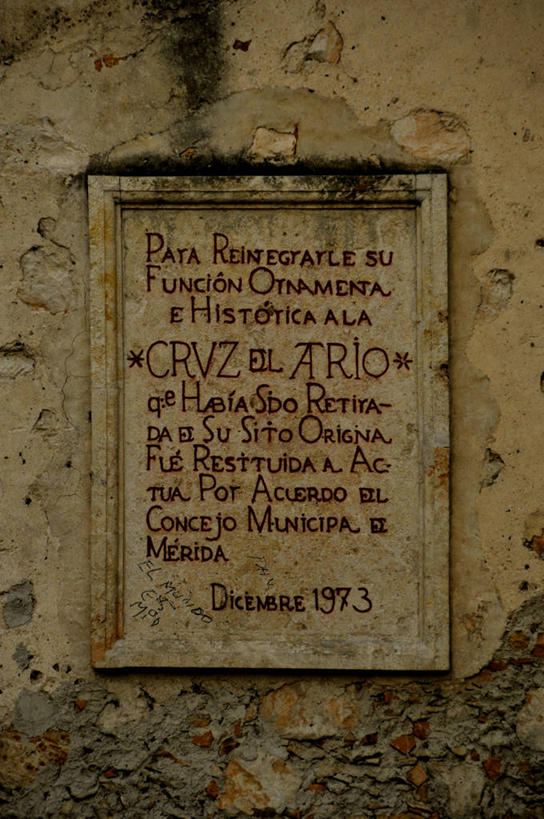 Para Reintegrarle su
Función Ornamental
e Histórica a la
*CRVZ DEL ATRIO*
qe Había Sido Retira-
da de Su Sitio Original
Fué Restituida a Ac-
tual Por Acuerdo del
Concejo Municipal de
Mérida
Diciembre 1973
EL MUNDO
ES
MIO